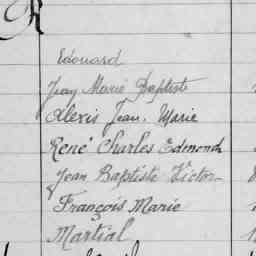 R
Edouard
Jean Marie Baptiste
Alexis Jean. Marie
René Charles Edmond
Jean Baptiste Victor
François Marie
Martial